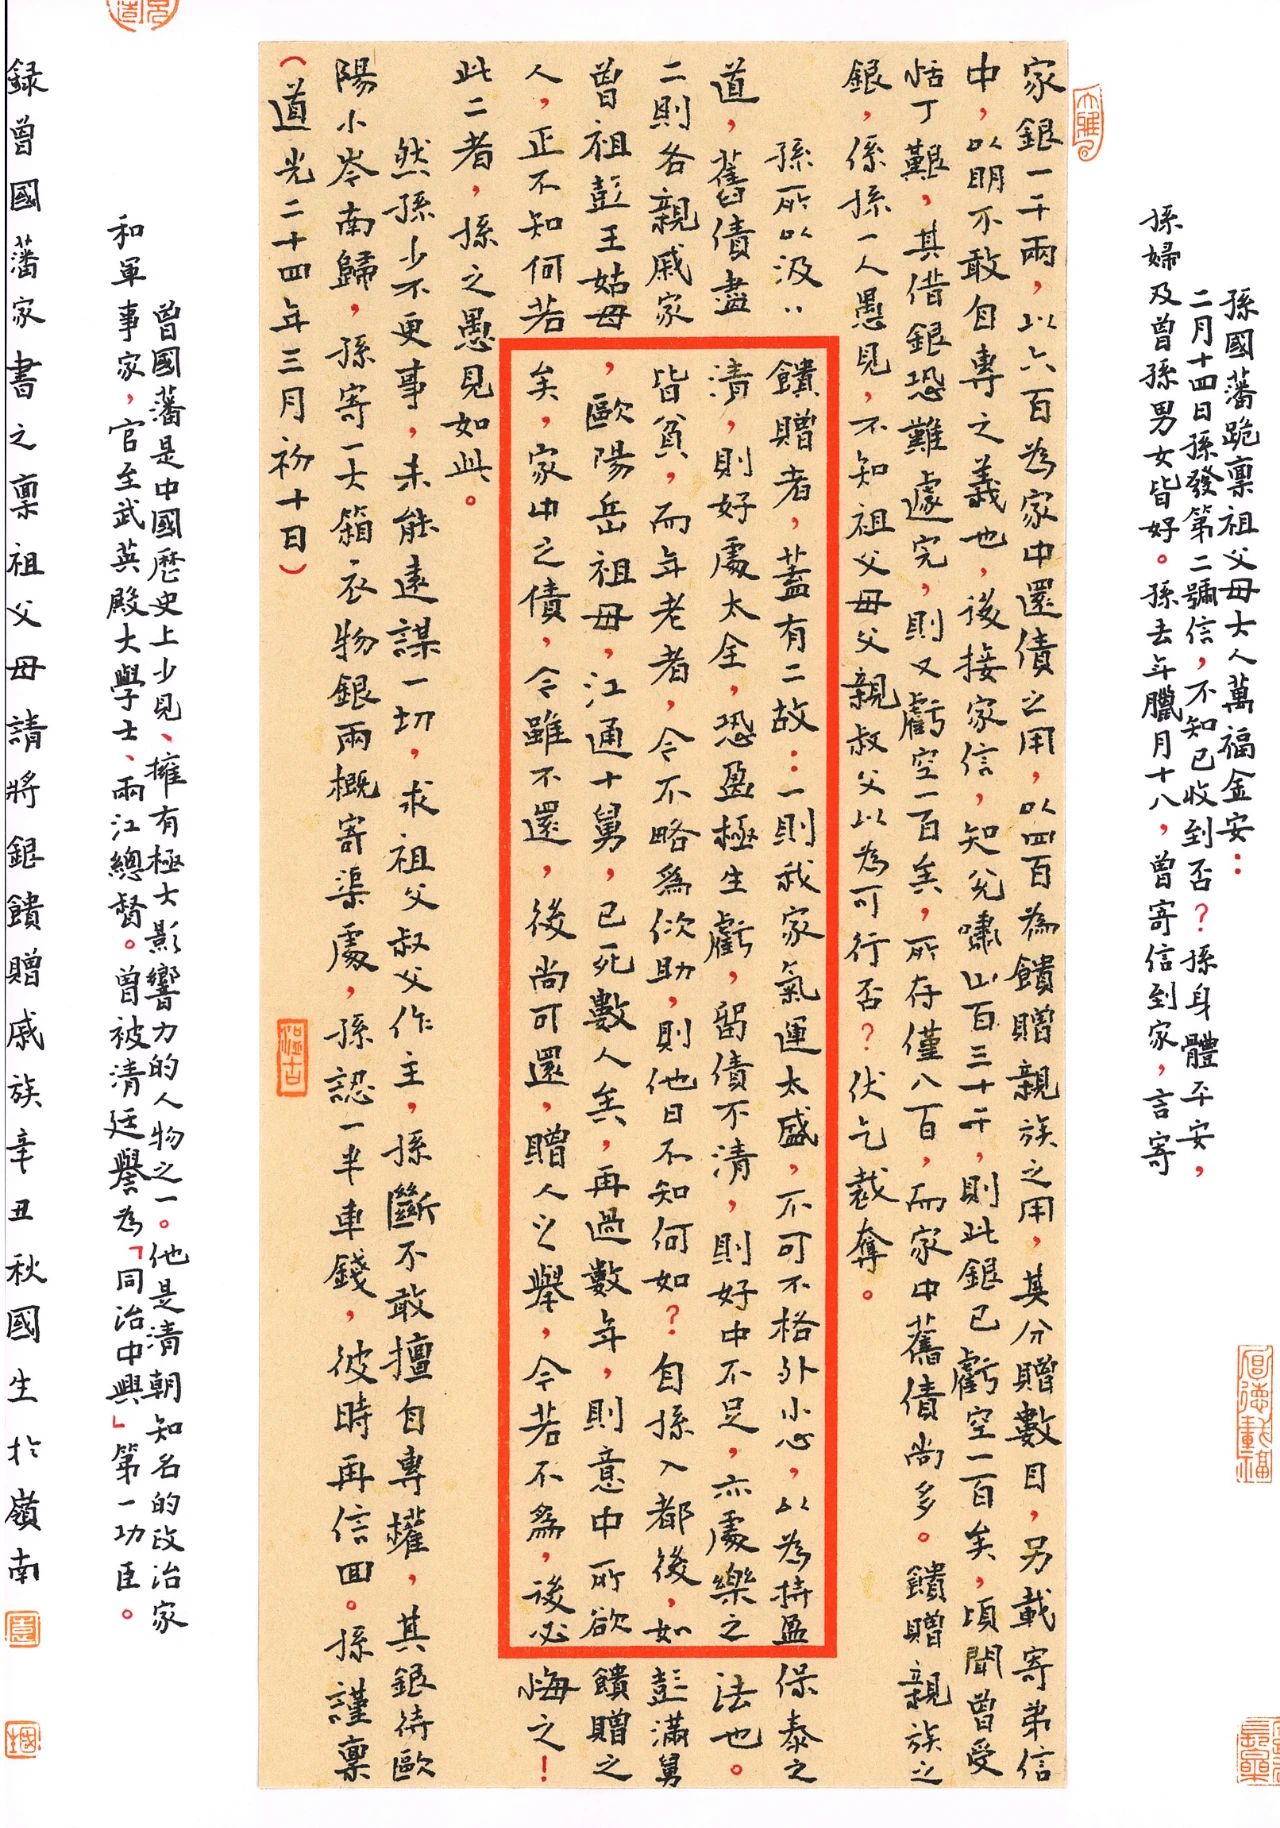 孫國藩跪稟祖父母大人萬福金安：
二月十四日孫發第二號信，不知已收到否？孫身體平安，
孫婦及曾孫男女皆好。孫去年臘月十八，曾寄信到家，言寄
家銀一千兩，以六百為家中還債之用，以四百為饋贈親族之用，其分贈數目，另載寄弟信
中，以明不敢自專之義也，後接家信，知兌嘯山百三十千，則此銀已虧空一百矣，頃聞曾受
恬丁艱，其借銀恐難遽完，則又虧空一百矣，所存僅八百，而家中舊債尚多。饋贈親族之
銀，係孫一人愚見，不知祖父母父親叔父以為可行否？伏乞裁奪。
孫所以汲‥饋贈者，蓋有二故：一則我家氣運太盛，不可不格外小心，以為持盈保泰之
道，舊債盡清，則好處太全，恐盈極生虧，留債不清，則好中不足，亦處樂之法也。
二則各親戚家皆貧，而年老者，今不略為佽助，則他日不知何如？自孫入都後，如彭滿舅
曾祖彭王姑母，歐陽岳祖母，江通十舅，已死數人矣，再過數年，則意中所欲饋贈之
人，正不知何若矣，家中之債，今雖不還，後尚可還，贈人之舉，今若不為，後必悔之！
此二者，孫之愚見如此。
然孫少不更事，未能遠謀一切，求祖父叔父作主，孫斷不敢擅自專權，其銀待歐
陽小岑南歸，孫寄一大箱衣物銀兩概寄渠處，孫認一半車錢，彼時再信回。孫謹稟
（道光二十四年三月初十日）
曾國藩是中國歷史上少見、擁有極大影響力的人物之一。他是清朝知名的政治家
和軍事家，官至武英殿大學士、兩江總督。曾被清廷譽為「同治中興」第一功臣。
録曾國藩家書之稟祖父母請將銀饋贈戚族辛丑秋國生於嶺南